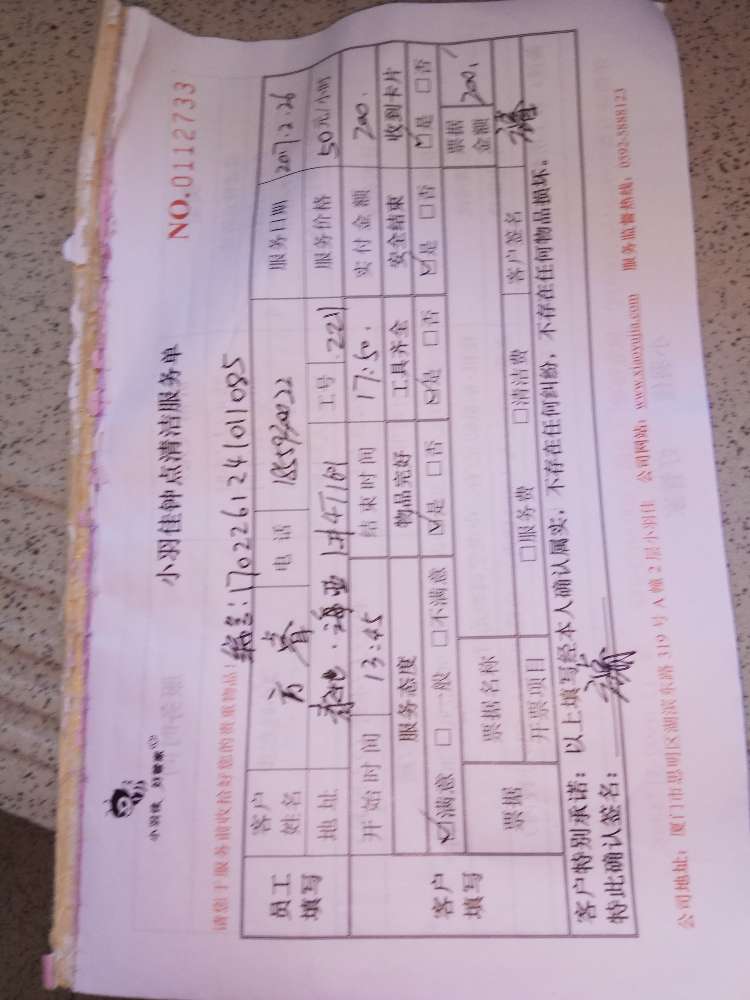 小羽佳 好管家
小羽佳钟点清洁服务单
NO.0112733
请您于服务前收拾好您的贵重物品!
编号:1702261241011085
员工填写
客户姓名 方 电话 服务日期 2017.2.26
地址 工号 221 服务价格 50元/小时
客户填写
开始时间 13:45 结束时间 17:50. 实付金额 200.
服务态度 物品完好 工具齐全 安全结束 收到卡片
☑满意 □一般 □不满意 ☑是 □否 ☑是 □否 ☑是 □否 ☑是 □否
票据 票据名称 票据金额 200.
开票项目 □服务费 □清洁费 客户签名
客户特别承诺:以上填写经本人确认属实,不存在任何纠纷,不存在任何物品损坏。
特此确认签名:
公司地址:厦门市思明区湖滨东路 319 号 A 幢 2 层小羽佳 公司网站:www.xiaoyujia.com 服务监督热线:0592-5888123